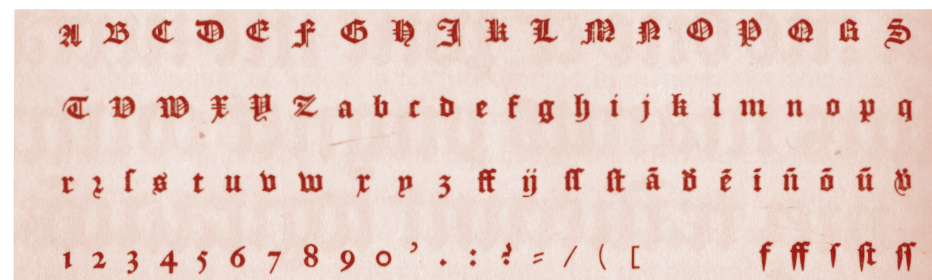 A B C D E F G H I K L M N O P Q R S
T V W X Y Z a b c d e f g h i j k l m n o p q
r ꝛ ſ s t u v w x y z ff ij ſſ ſt ã ẽ ĩ ñ õ ũ
1 2 3 4 5 6 7 8 9 0 ’ . : ? = / ( [ f ff ſ ſt ſſ